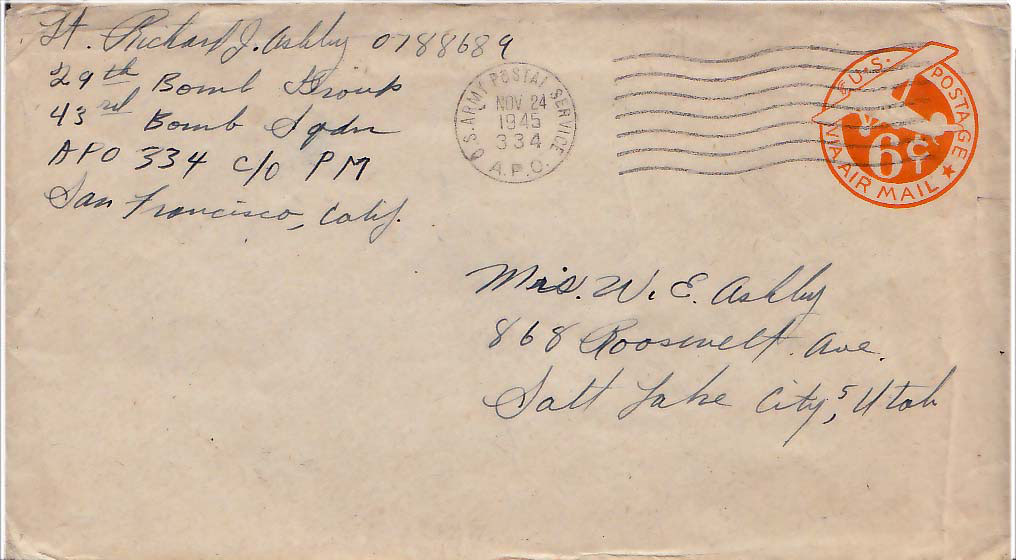 Lt. Richard J. Ashby 0788689
29th Bomb Group
43rd Bomb Sqdn
APO 334 c/o PM
San Francisco, Calif.
U.S. ARMY POSTAL SERVICE
NOV 24
1945
334
A.P.O.
U.S. POSTAGE
6¢
VIA AIR MAIL
Mrs. W. E. Ashby
868 Roosevelt Ave.
Salt Lake City, 5, Utah